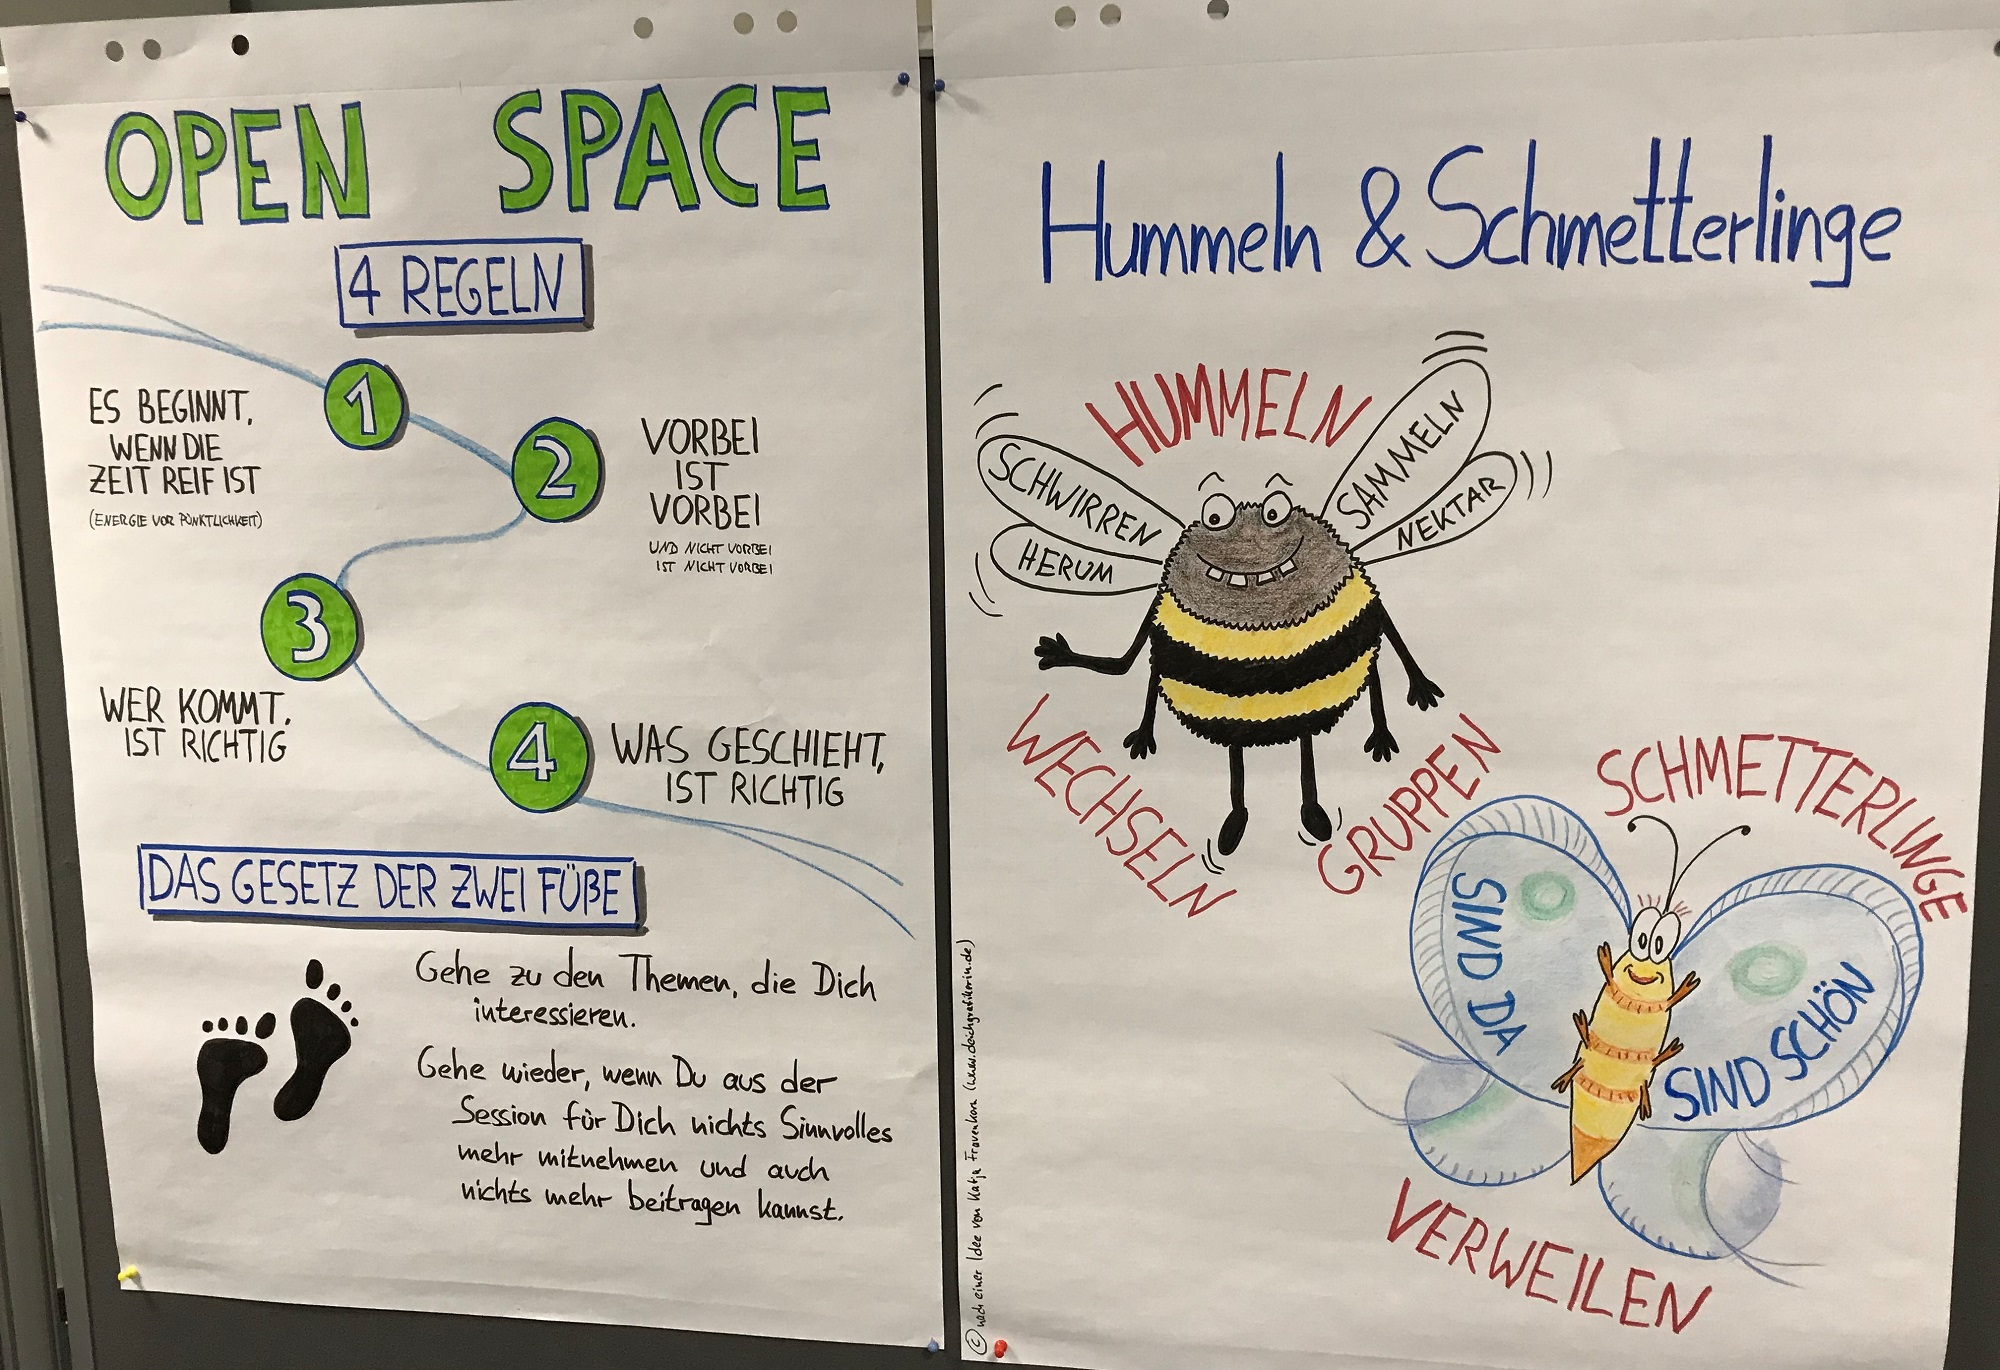 OPEN SPACE
4 REGELN
1
ES BEGINNT,
WENN DIE
ZEIT REIF IST
(ENERGIE VOR PÜNKTLICHKEIT)
2
VORBEI
IST
VORBEI
UND NICHT VORBEI
IST NICHT VORBEI
3
WER KOMMT,
IST RICHTIG
4
WAS GESCHIEHT,
IST RICHTIG
DAS GESETZ DER ZWEI FÜßE
Gehe zu den Themen, die Dich
interessieren.
Gehe wieder, wenn Du aus der
Session für Dich nichts Sinnvolles
mehr mitnehmen und auch
nichts mehr beitragen kannst.
Hummeln & Schmetterlinge
HUMMELN
SCHWIRREN
HERUM
SAMMELN
NEKTAR
WECHSELN
GRUPPEN
SCHMETTERLINGE
SIND DA
SIND SCHÖN
VERWEILEN
© nach einer Idee von Katja Frauenkron (www.deichgrafikerin.de)